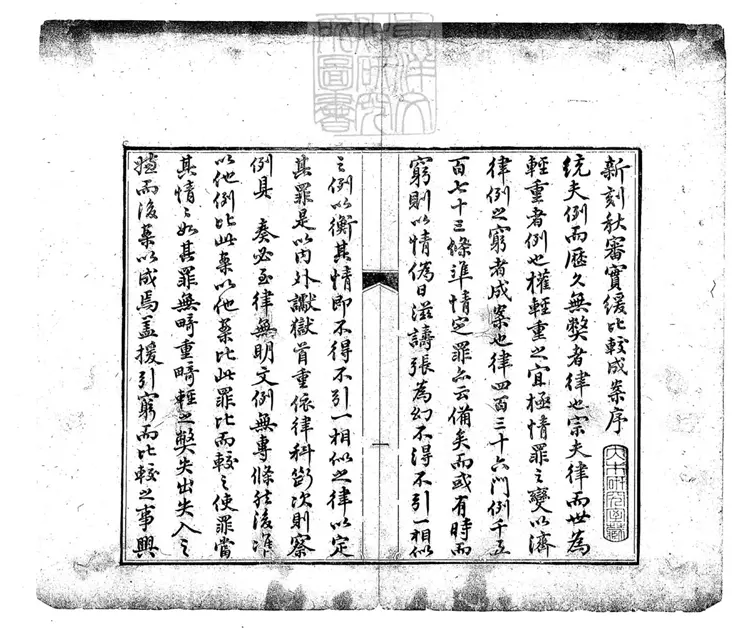 新刻秋審實緩比較成案序
統夫例而歷久無弊者律也宗夫律而世為
輕重者例也權輕重之宜極情罪之變以濟
律例之窮者成案也律四百三十六門例千五
百七十三條準情定罪亦云備矣而或有時而
窮則以情偽日滋譸張為幻不得不引一相似
之例以衡其情即不得不引一相似之律以定
其罪是以內外讞獄首重依律科斷次則察
例具奏必至律無明文例無專條然後准
以他例比此案以他案比此罪比而較之使罪當
其情情如其罪無畸重畸輕之弊失出失入之
愆而後案以成焉蓋援引窮而比較之事興
東洋文
化研究
所圖書